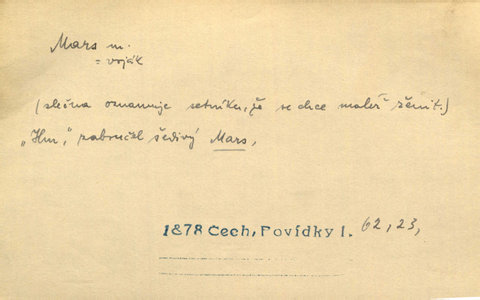 Mars m.
= voják
(slečna oznamuje setníku, že se chce malíř ženit.)
„Hm," zabručel šedivý Mars,
1878 Cech, Povídky I. 62, 23,